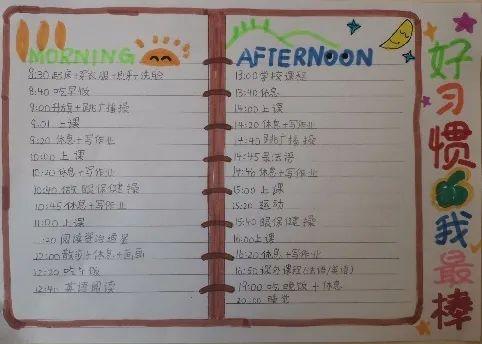 MORNING
8:30 起床+穿衣服+刷牙+洗脸
8:40 吃早饭
9:00 升旗+跳广播操
9:01 上课
9:20 休息+写作业
10:00 上课
10:20 休息+写作业
10:40 做眼保健操
10:45 休息+写作业
11:00 上课
:20 阅读
12:00 散步+休息+画画
12:20 吃午饭
12:40 英语阅读
AFTERNOON
13:00 学校课程
13:40 休息
14:00 上课
14:20 休息+写作业
14:40 跳广播操
14:45 法语
14:46 休息+写作业
15:00 上课
15:20 运动
15:40 眼保健操
16:00 上课
16:20 休息+写作业
16:50 课外课程(法语/英语)
19:00 吃晚饭+休息
20:00 睡觉
好习惯我最棒